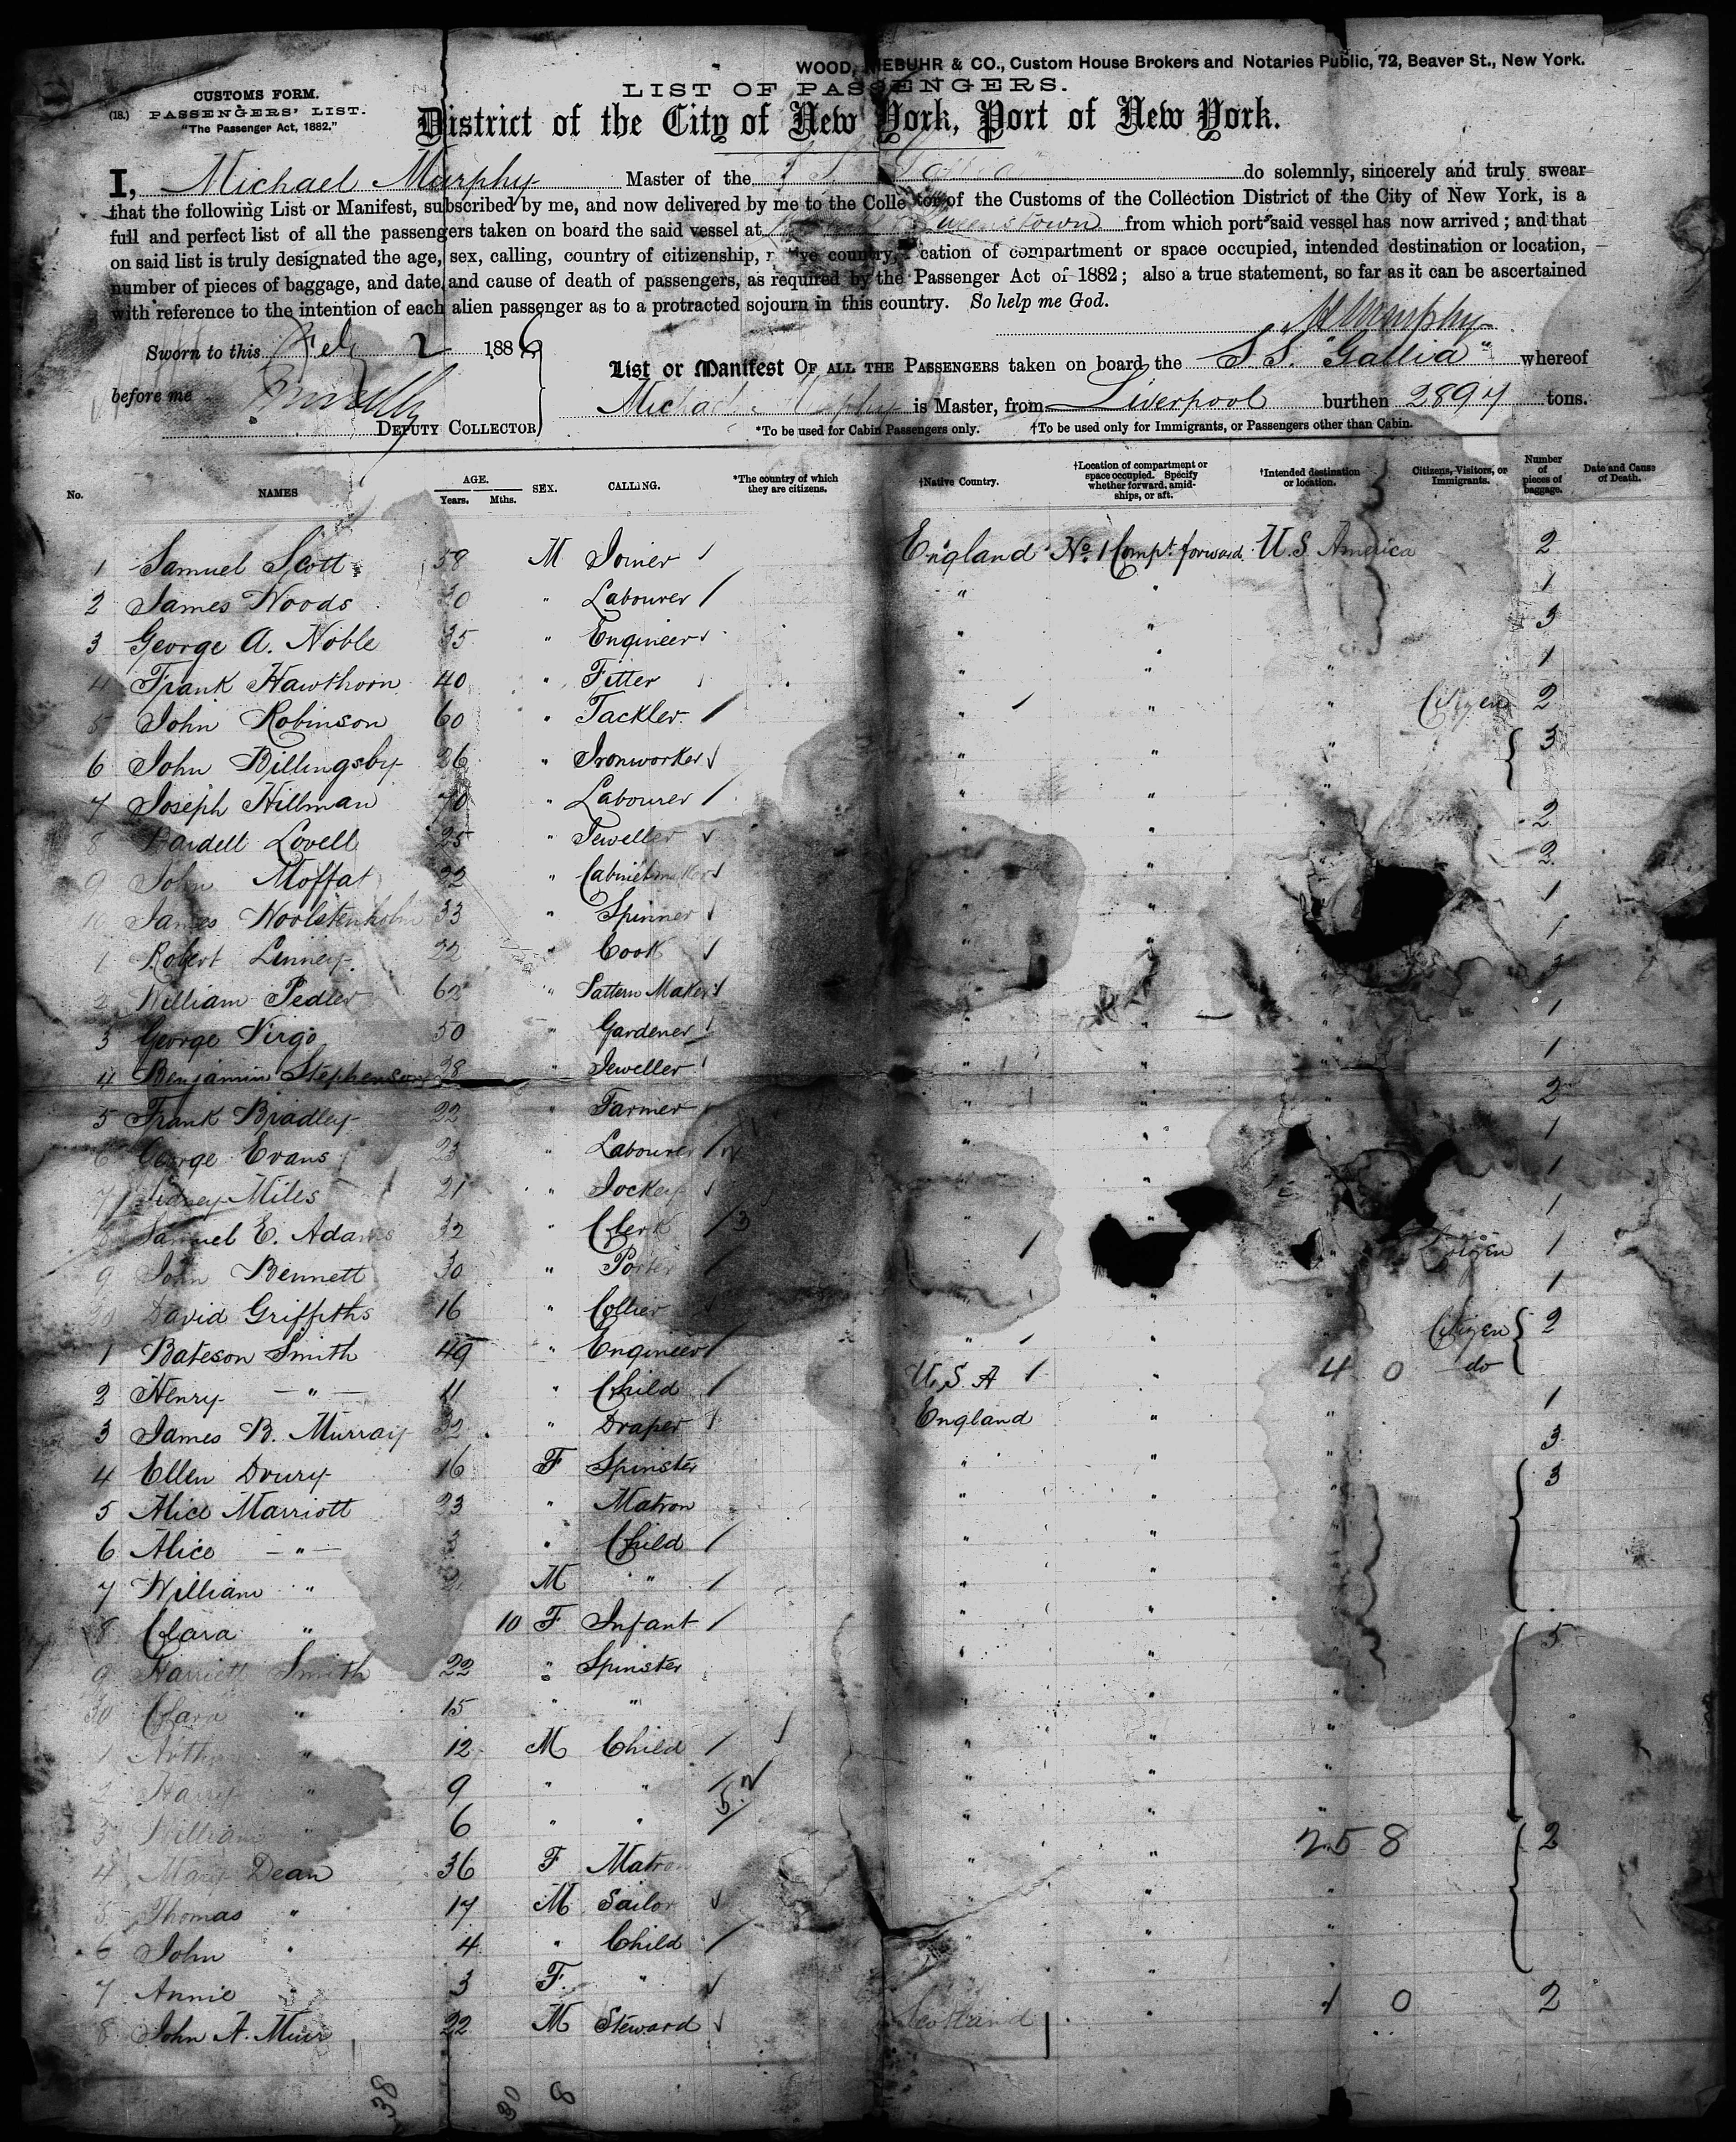 WOOD, NIEBUHR & CO., Custom House Brokers and Notaries Public, 72, Beaver St., New York.
CUSTOMS FORM.
(18.) PASSENGERS' LIST.
"The Passenger Act, 1882."
LIST OF PASSENGERS.
District of the City of New York, Port of New York.
I, Michael Murphy Master of the S.S. Gallia do solemnly, sincerely and truly swear
that the following List or Manifest, subscribed by me, and now delivered by me to the Collector of the Customs of the Collection District of the City of New York, is a
full and perfect list of all the passengers taken on board the said vessel at Queenstown from which port said vessel has now arrived; and that
on said list is truly designated the age, sex, calling, country of citizenship, native country, location of compartment or space occupied, intended destination or location,
number of pieces of baggage, and date and cause of death of passengers, as required by the Passenger Act of 1882; also a true statement, so far as it can be ascertained
with reference to the intention of each alien passenger as to a protracted sojourn in this country. So help me God.
M Murphy
Sworn to this Feb 2 1886
before me
DEPUTY COLLECTOR
List or Manifest OF ALL THE PASSENGERS taken on board the S.S. "Gallia" whereof
Michael Murphy is Master, from Liverpool burthen 2897 tons.
*To be used for Cabin Passengers only. †To be used only for Immigrants, or Passengers other than Cabin.
No. NAMES AGE. Years. Mths. SEX. CALLING. *The country of which they are citizens. †Native Country. †Location of compartment or space occupied. Specify whether forward, amidships, or aft. †Intended destination or location. Citizens, Visitors, or Immigrants. Number of pieces of baggage. Date and Cause of Death.
1 Samuel Scott 58 M Joiner England No. 1 Compt. forward U.S. America 2
2 James Woods 30 " Labourer " " " 1
3 George A. Noble 35 " Engineer " " " 3
4 Frank Hawthorn 40 " Fitter " " " 1
5 John Robinson 60 " Tackler " " " Citizen 2
6 John Billingsby 26 " Ironworker " " " 3
7 Joseph Hillman 70 " Labourer " " "
8 Bardell Lovell 25 " Jeweller " " " 2
9 John Moffat 22 " Cabinetmaker " " " 2
10 James Woolstenholm 33 " Spinner " " 1
1 Robert Linney 22 " Cook " " 1
2 William Pedler 62 " Pattern Maker " "
3 George Virgo 50 " Gardener " " " 1
4 Benjamin Stephenson 28 " Jeweller " " " 1
5 Frank Bradley 22 " Farmer " " " 2
6 George Evans 23 " Labourer " " " 1
7 Sidney Miles 21 " Jockey " " 1
8 Samuel E. Adams 32 " Clerk " " 1
9 John Bennett 30 " Porter " Citizen 1
20 David Griffiths 16 " Collier " " " 1
1 Bateson Smith 49 " Engineer " " " Citizen 2
2 Henry " 11 " Child U.S.A " 4 0 do
3 James B. Murray 32 " Draper England " " 1
4 Ellen Drury 16 F Spinster " " " 3
5 Alice Marriott 23 " Matron " " " 3
6 Alice " 3 " Child " " "
7 William " M " " " "
8 Clara " 10 F Infant " " "
9 Harriett Smith 22 " Spinster " " " 5
30 Clara " 15 " " " " "
1 Arthur " 12 M Child " " "
2 Harry " 9 " " " " "
3 William " 6 " " " " "
4 Mary Dean 36 F Matron " " 258 2
5 Thomas " 17 M Sailor " " "
6 John " 4 " Child " " "
7 Annie 3 F " "
8 John A. Muir 22 M Steward Scotland " 1 0 2
38 30 8